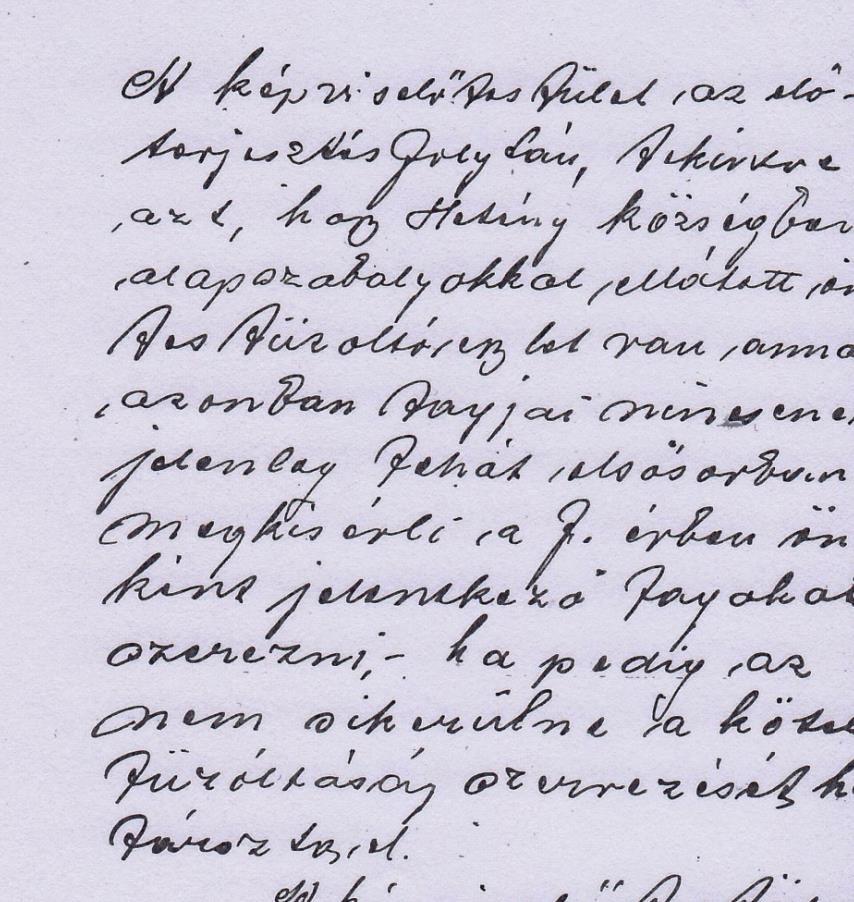 A képviselőtestület az elő-
terjesztés folytán, tekintve
azt, hogy Hetény községben
alapszabályokkal ellátott ön
tes tűzoltó egylet van, anna
azonban tagjai nincsene
jelenleg tehát elsősorban
megkisérli a f. évben ön
kint jelentkező tagokat
szerezni,- ha pedig az
nem sikerülne a köte
tűzóltóság szervezését h
tározta el.
A képviselőtestü